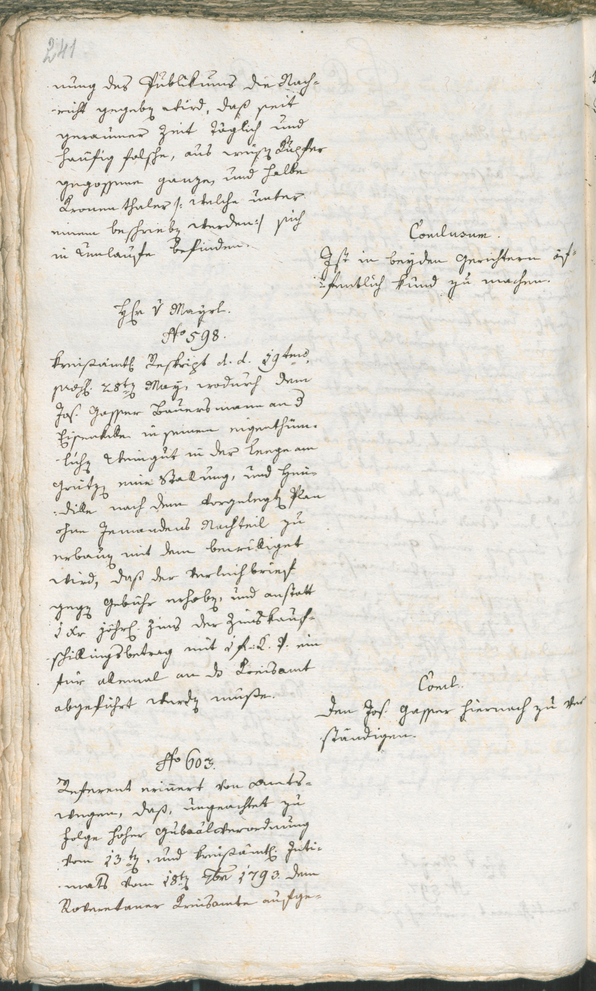 241
nung des Publikums die Nach-
richt gegeben wird, daß seit
geraumer Zeit täglich und
häufig falsche, aus weiß Kupfer
gegossene ganze, und halbe
Kronenthaler /: welche unter
einem beschrieben werden :/ sich
in Umlaufe befinden.
Conclusum.
Ist in beyden Gerichtern öf-
fentlich kund zu machen.
Hr. v Mayrl.
No 598.
Kreisämtl. Reskript d. d. 19tens,
praes. 28tn May, wodurch dem
Jos. Gasser Bauersmann an d
Eisenkike in seinem eigenthüm-
lichen Weingut in der Leege am
Grutzn eine Stallung, und Hei-
dille nach dem vorgelegten Plan
ohne Jemandens Nachteil zu
erbauen mit dem bewilliget
wird, daß der Verleichbrief
gegen Gebühr erhoben, und anstatt
1 Kr jährl. Zins der Zinskauf-
schillingsbetrag mit 1 f. ein
für allemal an das Kreisamt
abgeführt werden müße.
Concl.
Den Jos. Gasser hiernach zu ver-
ständigen.
No 603.
Referent erinert von Amts-
wegen, daß, ungeachtet zu
Folge hoher Gubaalverordnung
vom 13tn, und kreisämtl. Inti-
mats vom 18tn 7ber 1793 dem
Roveretaner Kreisamte aufge-